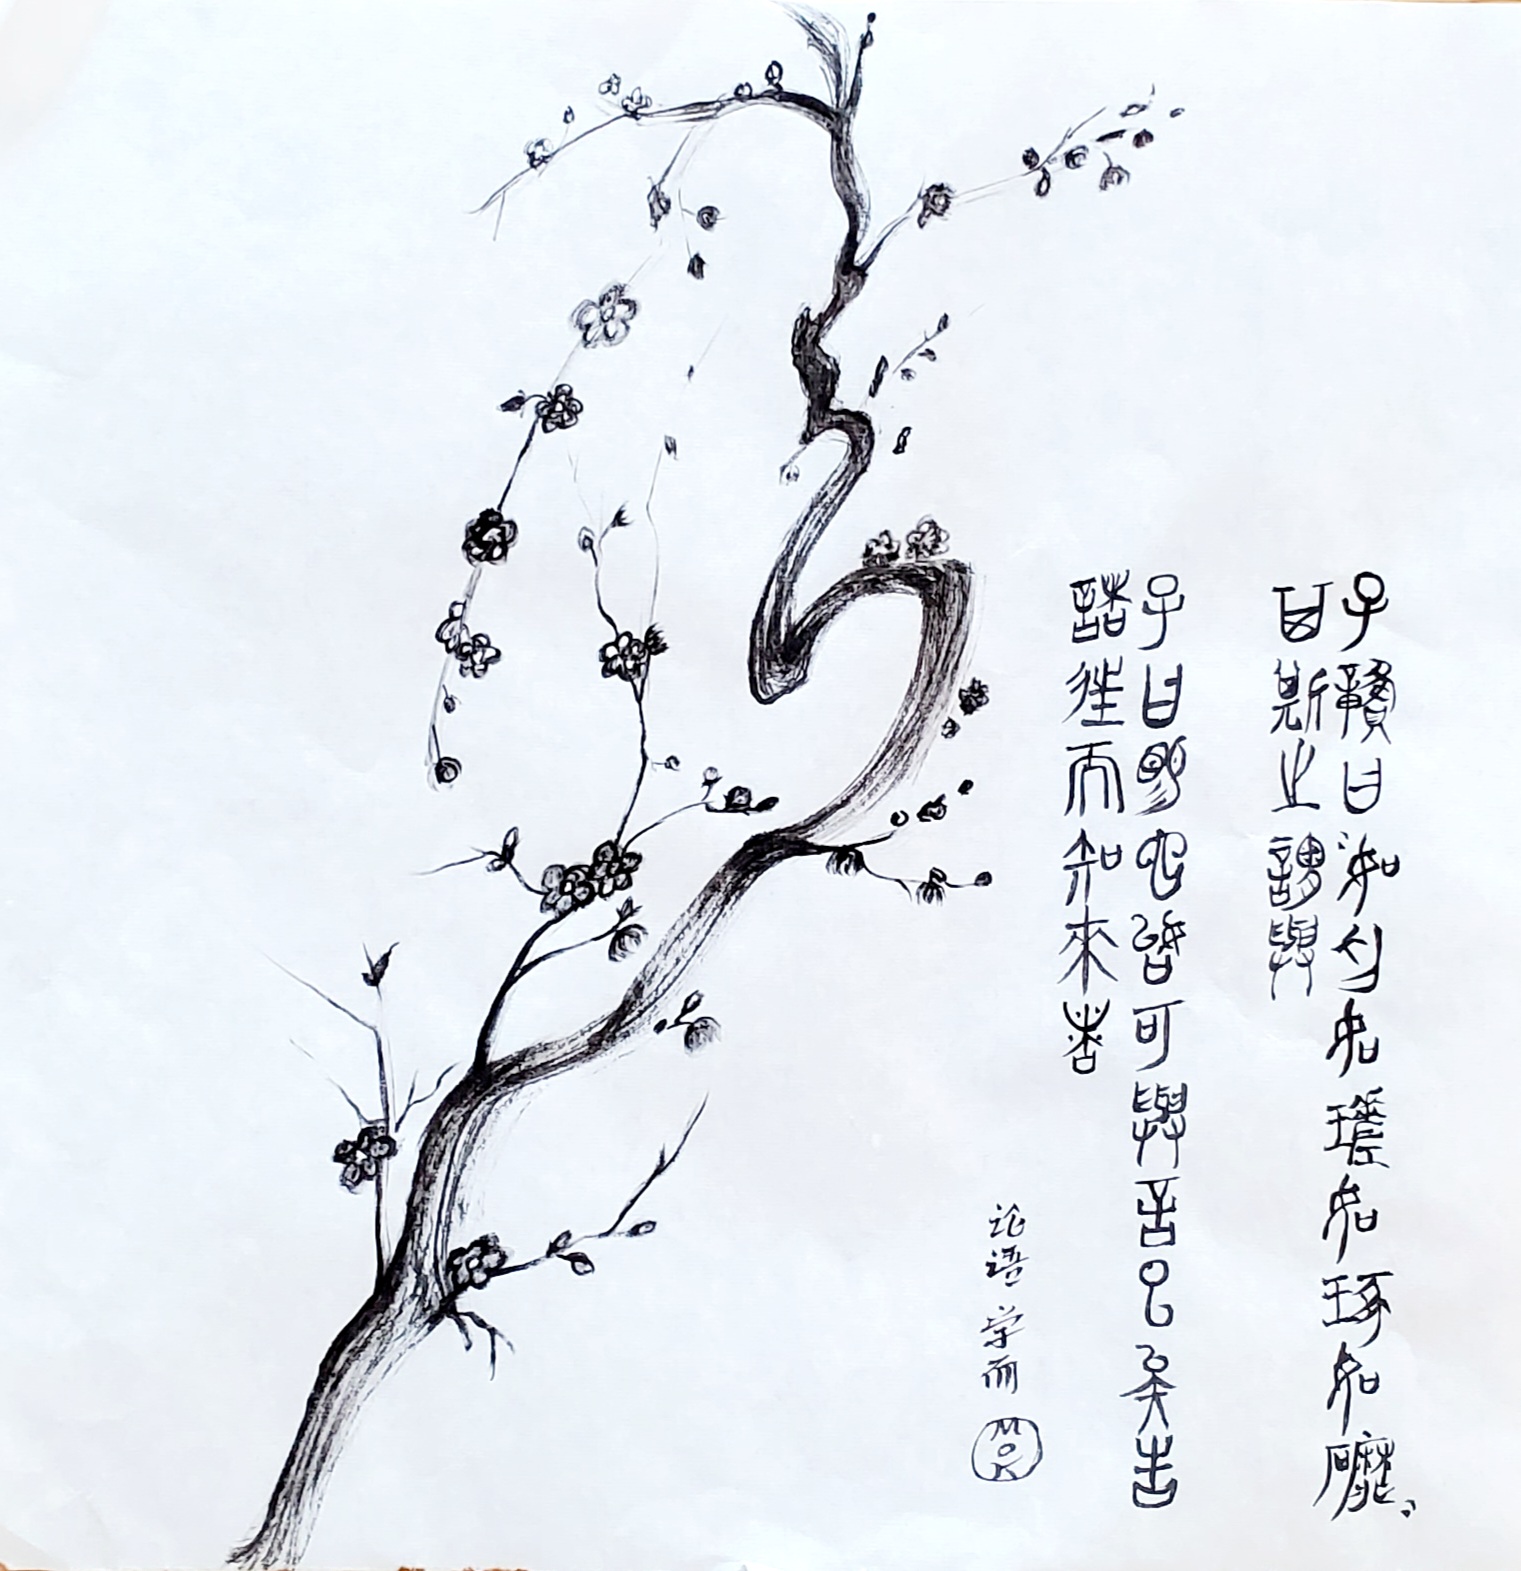 子贛曰如切如瑳如琢如磨
其斯之謂與
子曰賜也始可與言已矣告
諸往而知來者
论语 学而
MOK